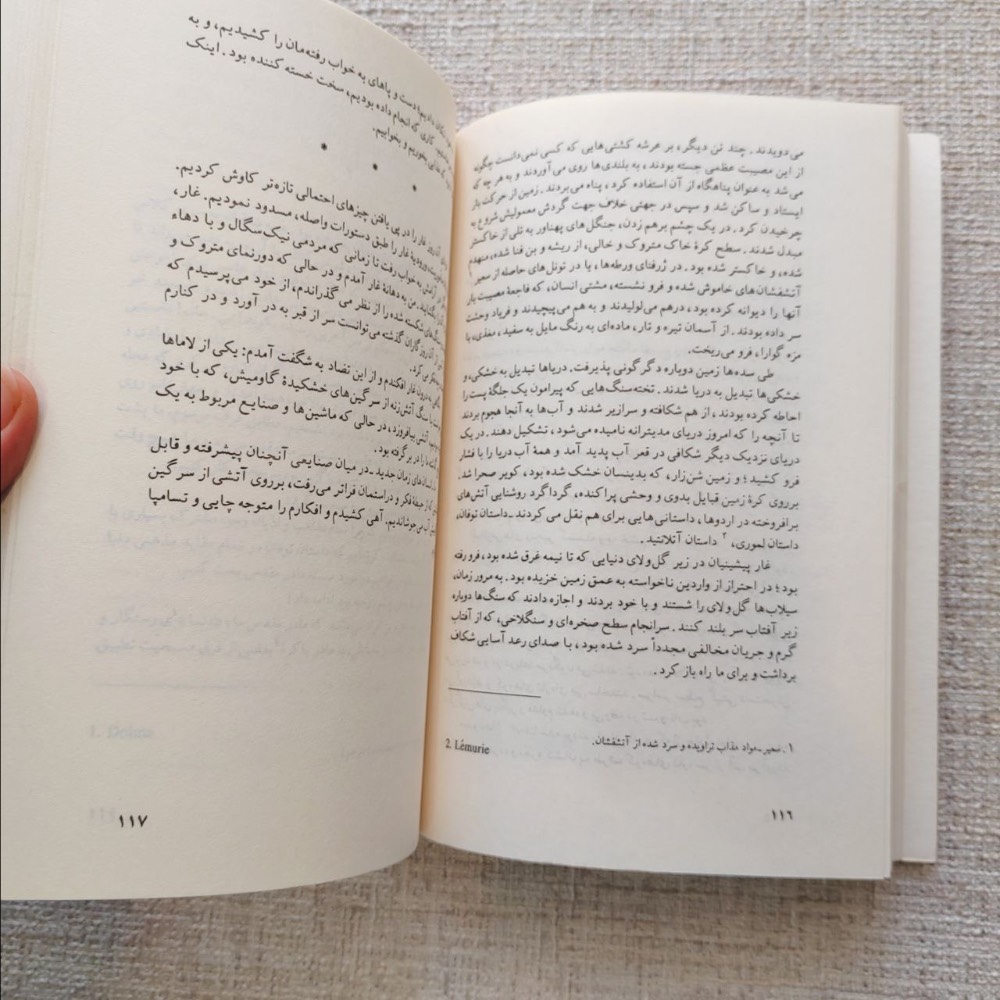 می‌دویدند. چند تن دیگر، بر عرشه کشتی‌هایی که کسی نمی‌دانست چگونه
از این مصیبت عظمی جسته بودند، به بلندی‌ها روی می‌آوردند و به هر چه که
می‌شد به عنوان پناهگاه از آن استفاده کرد، پناه می‌بردند. زمین از حرکت باز
ایستاد و ساکن شد و سپس در جهتی خلاف جهت گردش معمولیش شروع به
چرخیدن کرد. در یک چشم برهم زدن، جنگل‌های پهناور به تلی از خاکستر
مبدل شدند. سطح کرهٔ خاک متروک و خالی، از ریشه و بن فنا شده، منهدم
شده، و خاکستر شده بود. در ژرفنای ورطه‌ها، یا در تونل‌های حاصله از سعیر
آتشفشان‌های خاموش شده و فرو نشسته، مشتی انسان، که فاجعهٔ مصیبت بار
آنها را دیوانه کرده بود، درهم می‌لولیدند و به هم می‌پیچیدند و فریاد وحشت
سر داده بودند. از آسمان تیره و تار، ماده‌ای به رنگ مایل به سفید، مغذی، با
مزه گوارا، فرو می‌ریخت.
طی سده‌ها زمین دوباره دگرگونی پذیرفت. دریاها تبدیل به خشکی، و
خشکی‌ها تبدیل به دریا شدند. تخته‌سنگ‌هایی که پیرامون یک جلگهٔ پست را
احاطه کرده بودند، از هم شکافته و سرازیر شدند و آب‌ها به آنجا هجوم بردند
تا آنچه را که امروز دریای مدیترانه نامیده می‌شود، تشکیل دهند. در یک
دریای نزدیک دیگر شکافی در قعر آب پدید آمد و همهٔ آب دریا را با فشار
فرو کشید؛ و زمین شن‌زار، که بدینسان خشک شده بود، کویر صحرا شد.
برروی کرهٔ زمین قبایل بدوی و وحشی پراکنده، گرداگرد روشنایی آتش‌های
برافروخته در اردوها، داستانی‌هایی برای هم نقل می‌کردند ـ داستان توفان،
داستان لموری، ۲ داستان آتلانتید.
غار پیشینیان در زیر گل‌ولای دنیایی که تا نیمه غرق شده بود، فرو رفته
بود؛ در احتراز از واردین ناخواسته به عمق زمین خزیده بود. به مرور زمان،
سیلاب‌ها گل‌ولای را شستند و با خود بردند و اجازه دادند که سنگ‌ها دوباره
زیر آفتاب سر بلند کنند. سرانجام سطح صخره‌ای و سنگلاخی، که از آفتاب
گرم و جریان مخالفی مجدداً سرد شده بود، با صدای رعد آسایی شکاف
برداشت و برای ما راه باز کرد.
۱. سعیر ـ مواد مذاب تراویده و سرد شده از آتشفشان.
2. Lémurie
۱۱۶
دادیم، دست و پاهای به خواب رفته‌مان را کشیدیم، و به
کاری که انجام داده بودیم، سخت خسته کننده بود. اینک
بخوریم و بخوابیم.
* * *
آن روز، غار را در پی یافتن چیزهای احتمالی تازه‌تر کاوش کردیم.
ورودیهٔ غار را طبق دستورات واصله، مسدود نمودیم. غار،
به خواب رفت تا زمانی که مردمی نیک‌سگال و با دهاء
من به دهانهٔ غار آمدم و در حالی که دورنمای متروک و
سنگ‌های شکسته شده را از نظر می‌گذراندم، از خود می‌پرسیدم که
از آن روزگاران گذشته می‌توانست سر از قبر به در آورد و در کنارم
می‌کرد.
درون غار افکندم و از این تضاد به شگفت آمدم: یکی از لاماها
سنگ آتش‌زنه از سرگین‌های خشکیدهٔ گاومیش، که با خود
آتشی بیافروزد، در حالی که ماشین‌ها و صنایع مربوط به یک
ما را در بر گرفته بود.
انسان‌های زمان جدید ـ در میان صنایعی آنچنان پیشرفته و قابل
از حیطهٔ فکر و دراستمان فراتر می‌رفت، برروی آتشی از سرگین
آب می‌جوشاندیم. آهی کشیدم و افکارم را متوجه چایی و تسامپا
۱۱۷